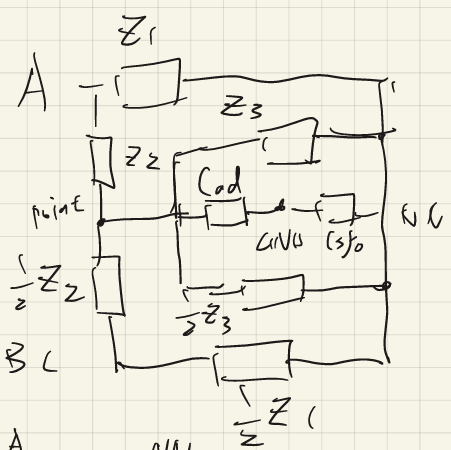 Z1
A
Z3
Z2
Cad
point
GND Csfo
1/2 Z2
1/2 Z3
B C
1/2 Z1
A